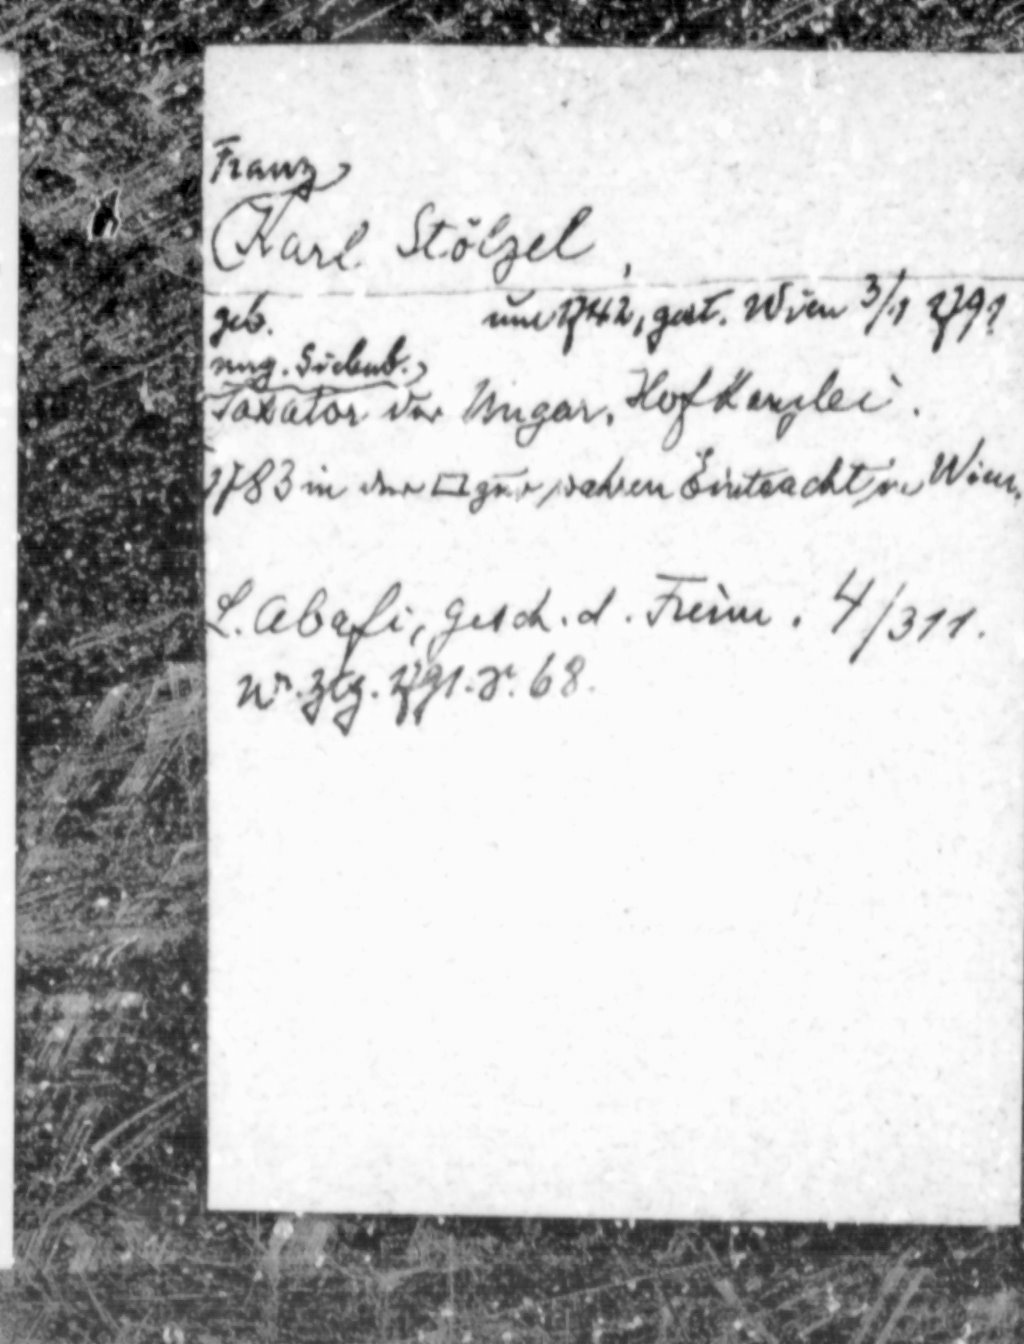 Franz
Karl Stölzel,
geb. um 1742, gest. Wien 3/1 1791
ung. Siebenb.
Taxator der Ungar. Hofkanzlei.
1783 in der □ zur wahren Eintracht in Wien.
L. Abafi, Gesch. d. Freim. 4/311.
Wr. Ztg. 1791. S. 68.